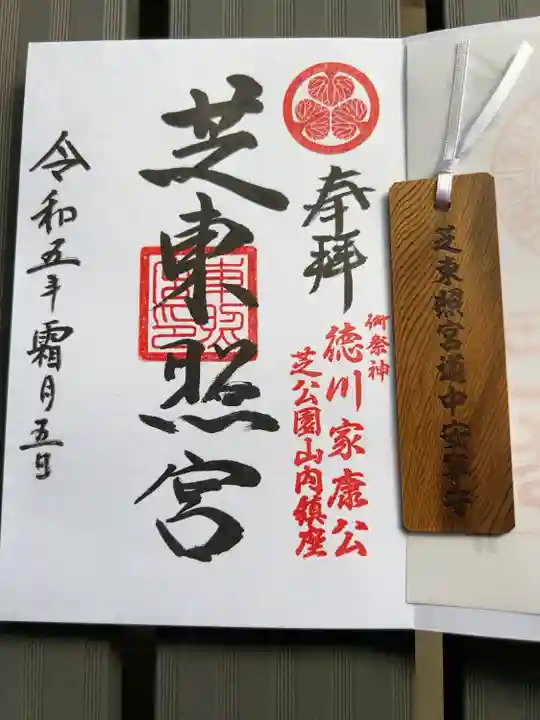 芝東照宮道中安全守
奉拝
御祭神
徳川家康公
芝公園山内鎮座
芝東照宮
令和五年霜月五日